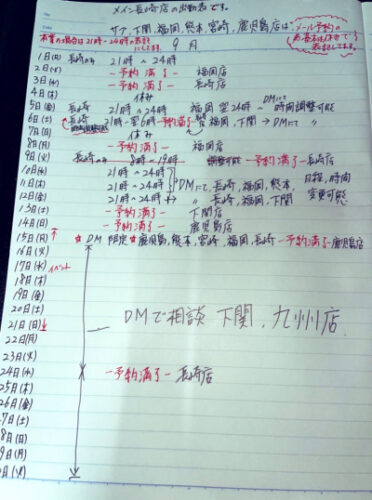 メイン長崎店の出勤表です。
サブ、下関、福岡、熊本、宮崎、鹿児島店は
メール予約の
9月
1日(月) 長崎のみ 21時〜24時
2日(火) -予約満了- 福岡店
3日(水) -予約満了- 長崎店
4日(木) 休み
5日(金) 長崎 21時〜24時 福岡 翌24時〜 DMにて時間調整可能
6日(土) 長崎 21時-翌6時-予約満了- 福岡、下関→DMにて 〃
7日(日) 休み
8日(月) -予約満了- 福岡店
9日(火) 長崎のみ 8時〜19時 調整可能 -予約満了-長崎店
10日(水) 21時〜24時
11日(木) 21時〜24時 DMにて、長崎、福岡、熊本、日程、時間
12日(金) 21時〜24時 〃 長崎、福岡、下関 変更可能
13日(土) -予約満了- 下関店
14日(日) -予約満了- 鹿児島店
15日(月) ☆DM限定☆鹿児島、熊本、宮崎、福岡、長崎-予約満了-鹿児島店
16日(火)
17日(水) イベント
18日(木)
19日(金)
20日(土)
21日(日) DMで相談 下関、九州店
22日(月)
23日(火)
24日(水) -予約満了- 長崎店
25日(木)
26日(金)
7日(土)
8日(日)
9日(月)
日(火)